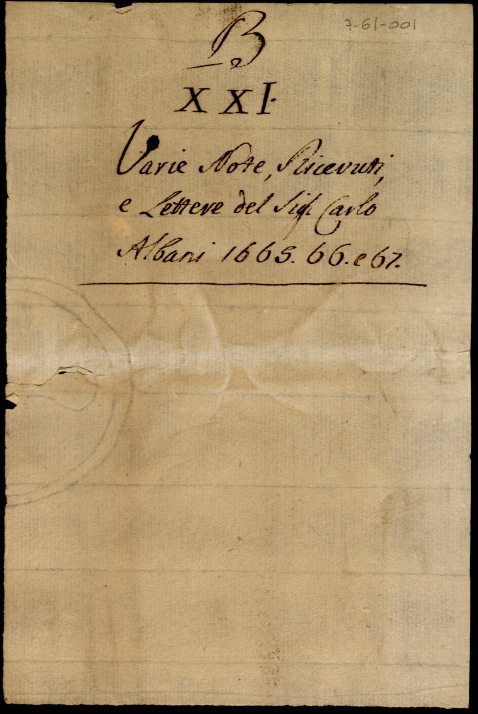 7-61-001
B
XXI.
Varie Note, Ricevuti,
e Lettere del Sig.r Carlo
Albani 1665. 66. e 67.